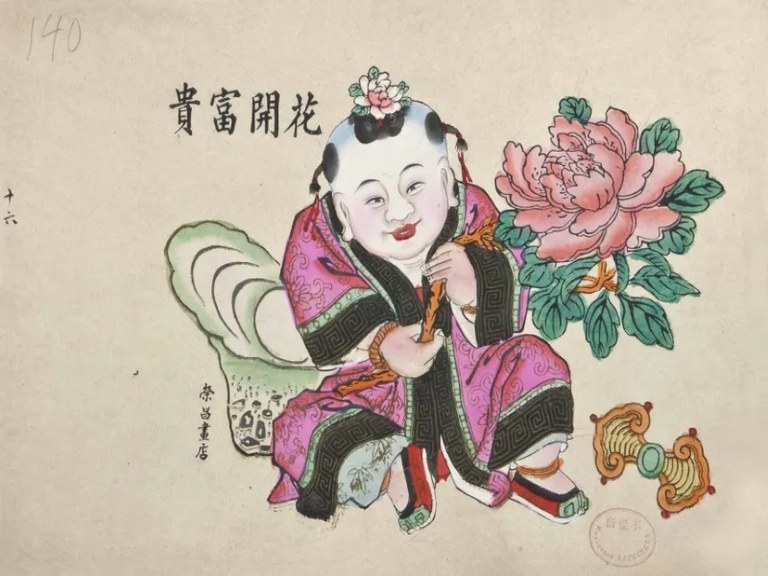 140
花開富貴
十六
榮昌畫店